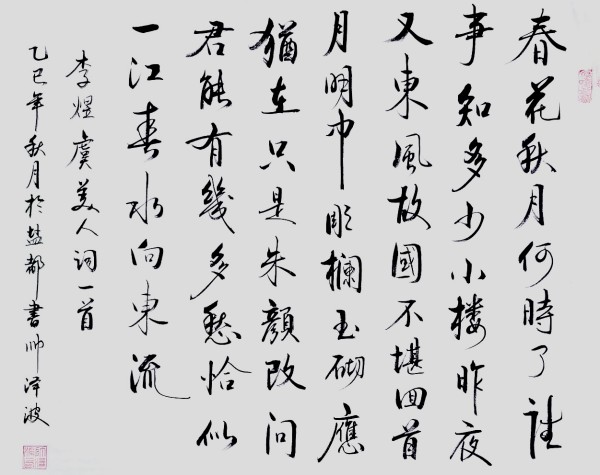 春花秋月何時了往
事知多少小楼昨夜
又東風故國不堪回首
月明中彫欄玉砌應
猶在只是朱顔改問
君能有幾多愁恰似
一江春水向東流
李煜虞美人词一首
乙巳年秋月於盐都書帅泽波